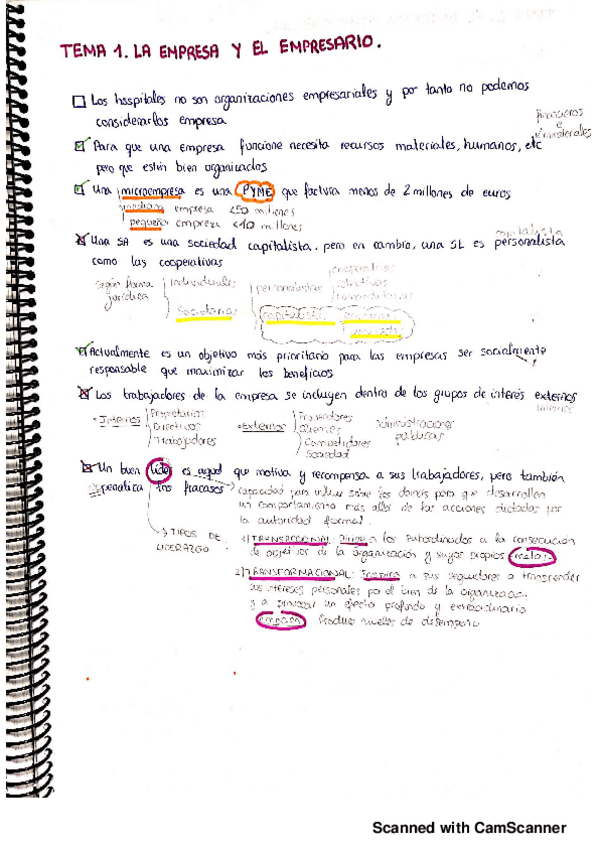 TEMA 1. LA EMPRESA Y EL EMPRESARIO.
Los hospitales no son organizaciones empresariales y por tanto no podemos
considerarlos empresa
financieros
e
Para que una empresa funcione necesita recursos materiales, humanos, etc
pero que estén bien organizados
Una microempresa es una PYME que factura menos de 2 millones de euros
mediana empresa <50 millones
pequeña empresa <10 millones
capitalista
Una SA es una sociedad capitalista. pero en cambio, una SL es personalista
como las cooperativas
según forma
jurídica
Individuales
Societarias
personalistas
cooperativas
colectivas
comanditarias
capitalistas
Actualmente es un objetivo más prioritario para las empresas ser socialmente
responsable que maximizar los beneficios
Los trabajadores de la empresa se incluyen dentro de los grupos de interés externos
internos
Internos
Propietarios
Directivos
Trabajadores
Externos
Proveedores
Clientes
Competidores
Sociedad
administraciones
públicas
Un buen líder es aquel que motiva y recompensa a sus trabajadores, pero también
penaliza los fracasos
capacidad para influir sobre los demás para que desarrollen
un comportamiento más allá de las acciones dictadas por
la autoridad formal.
TIPOS DE
LIDERAZGO
1) TRANSACCIONAL: Dirige a los subordinados a la consecución
de objetivos de la organización y suyos propios
2) TRANSFORMACIONAL: Inspira a sus seguidores a transcender
sus intereses personales por el bien de la organización
y a provocar un efecto profundo y extraordinario
emoción Produce niveles de desempeño
Scanned with CamScanner